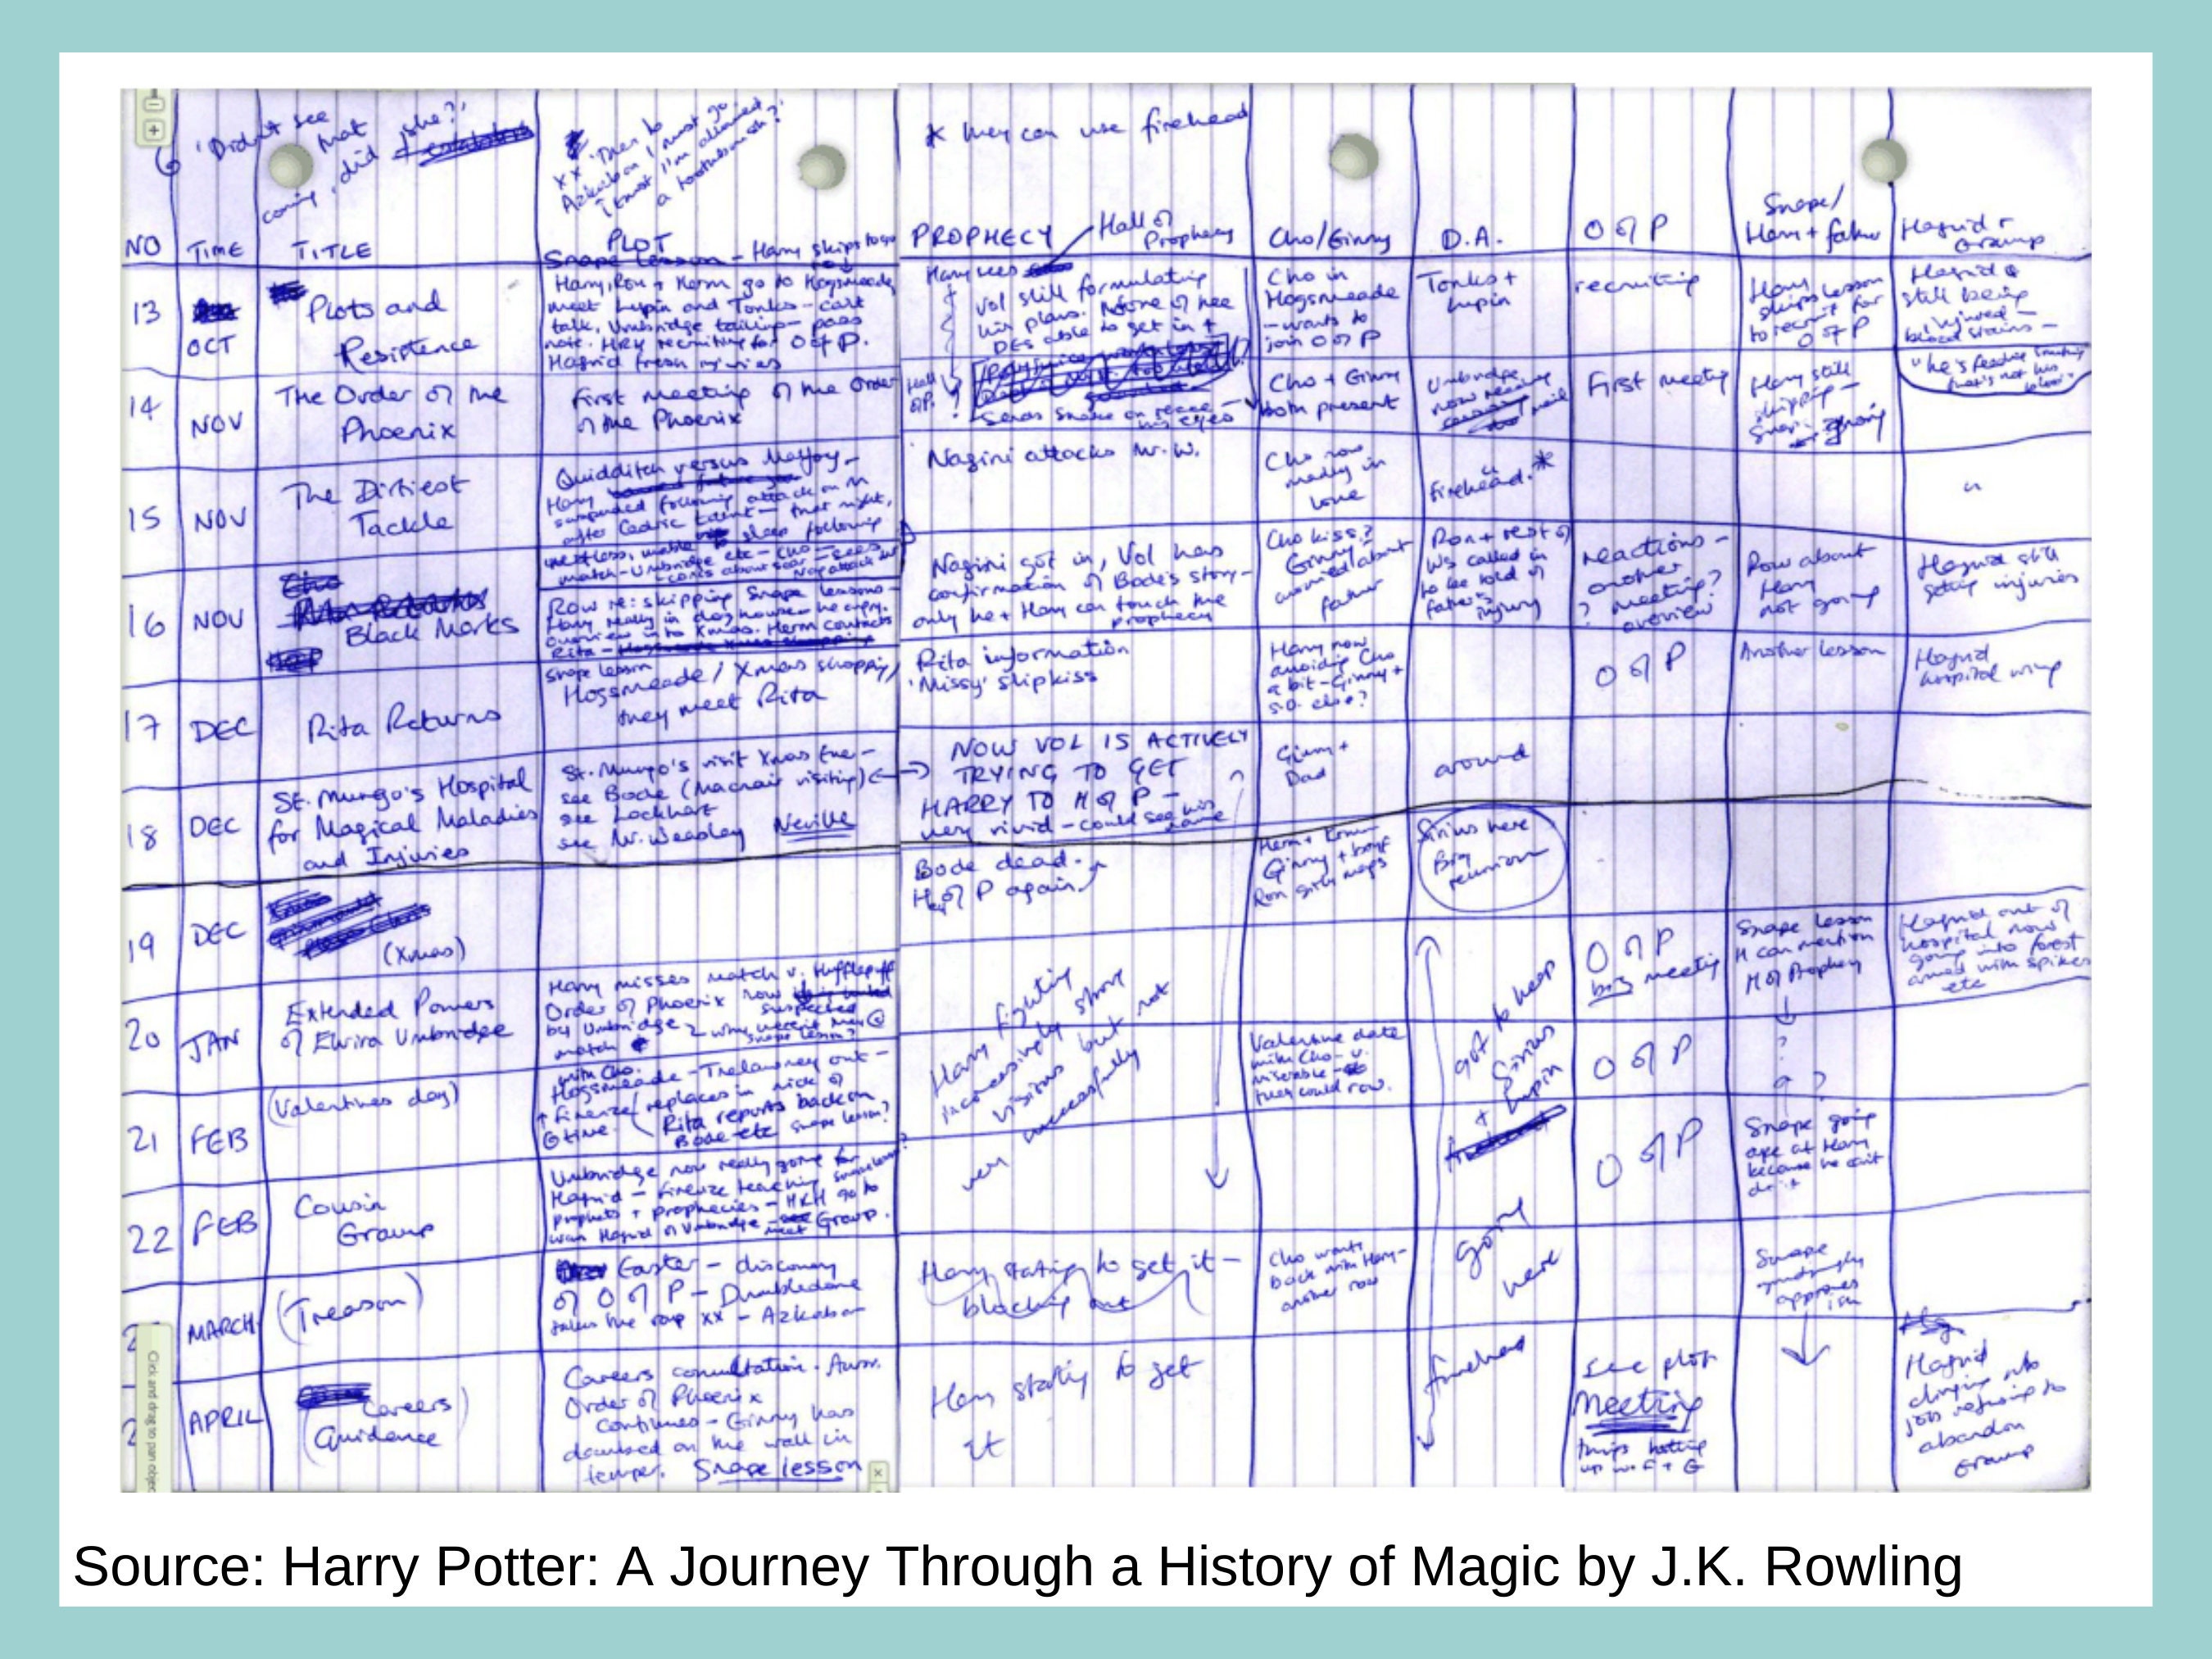 'Didn't see
that
coming, did she?'
xx 'Then to
Azkaban I must go
I trust I'm allowed
a toothbrush?'
* they can use firehead
NO
TIME
TITLE
PLOT
PROPHECY
Hall of
Prophecy
Cho/Ginny
D.A.
O of P
Snape/
Harry + father
Hagrid +
Grawp
Snape lesson - Harry skips to go
13
OCT
Plots and
Resistence
Harry, Ron + Herm go to Hogsmeade,
meet Lupin and Tonks - can't
talk, Umbridge tailing - pass
note. HRH recruiting for O of P.
Hagrid fresh injuries
Harry sees
Vol still formulating
his plans. None of the
DEs able to get in +
Cho in
Hogsmeade
- wants to
join O of P
Tonks +
Lupin
recruiting
Harry
skips lesson
to recruit for
O of P
Hagrid
still being
injured -
blood stains -
14
NOV
The Order of the
Phoenix
First meeting of the Order
of the Phoenix
Hall
of P.
Sends snake on recce -
his eyes
Cho + Ginny
both present
Umbridge
now reading
mail
First meeting
Harry still
skipping -
15
NOV
The Dirtiest
Tackle
Quidditch versus Malfoy -
Harry
suspended following attack on M
after Cedric taunt - that night,
restless, unable sleep following
match - Umbridge etc - Cho - sees
Nag attack
Nagini attacks Mr. W.
Cho now
madly in
love
Firehead. *
"
16
NOV
Black Marks
Row re: skipping Snape lessons -
Harry really in doghouse - he angry.
overview in to Xmas. Herm contacts
Rita -
Nagini got in, Vol has
confirmation of Bode's story -
only he + Harry can touch the
prophecy
Cho kiss?
Ginny -
worried about
father
Ron + rest of
Ws called in
to be told of
father's
injury
reactions -
another
meeting?
? overview
Row about
Harry
not going
Hagrid still
getting injuries
17
DEC
Rita Returns
Snape lesson
Hogsmeade / Xmas shopping
they meet Rita
Rita information
'Missy' slipkiss
Harry now
avoiding Cho
a bit - Ginny +
s.o. else?
O of P
Another lesson
Hagrid
hospital wing
18
DEC
St. Mungo's Hospital
for Magical Maladies
and Injuries
St. Mungo's visit Xmas Eve -
see Bode (Macnair visiting)
see Lockhart
see Mr. Weasley Neville
NOW VOL IS ACTIVELY
TRYING TO GET
HARRY TO H of P -
very vivid - could see his
name
Ginny +
Dad
around
19
DEC
(Xmas)
Bode dead.
H of P again
Herm + Krum
Ginny + boyf
Ron girls
Sirius here
Big
reunion
20
JAN
Extended Powers
of Elvira Umbridge
Harry misses match v. Hufflepuff
Order of Phoenix now
suspected
by Umbridge why weren't they @
match
Snape lesson?
Harry fighting
increasingly strong
visions but not
very successfully
got to keep
Sirius
+ Lupin
going
here
O of P
big meeting
Snape lesson
H can mention
H of Prophecy
Hagrid out of
hospital now
going into forest
armed with spikes
etc
21
FEB
(Valentines day)
with Cho.
Hogsmeade - Trelawney out -
Firenze replaces in nick of
time.
Rita reports back on
Bode etc Snape lesson?
Valentine date
with Cho - v.
miserable -
they could row.
O of P
?
22
FEB
Cousin
Grawp
Umbridge now really going for
Hagrid - Firenze teaching
prophets + prophecies - HRH go to
warn Hagrid of Umbridge - meet Grawp.
O of P
Snape going
ape at Harry
because he can't
do it
MARCH
(Treason)
Easter - discovery
of O of P - Dumbledore
takes the rap xx - Azkaban
Harry starting to get it -
blocking out
Cho wants
back with Harry -
another row
Snape
grudgingly
approves
ish
APRIL
Careers
Guidance
Careers consultation. Auror.
Order of Phoenix
continues - Ginny has
daubed on the wall in
temper. Snape lesson
Harry starting to get
it
firehead
see plot
Meeting
things hotting
up w. F + G
Hagrid
clinging onto
job refusing to
abandon
Grawp
Click and drag to pan objec
Source: Harry Potter: A Journey Through a History of Magic by J.K. Rowling